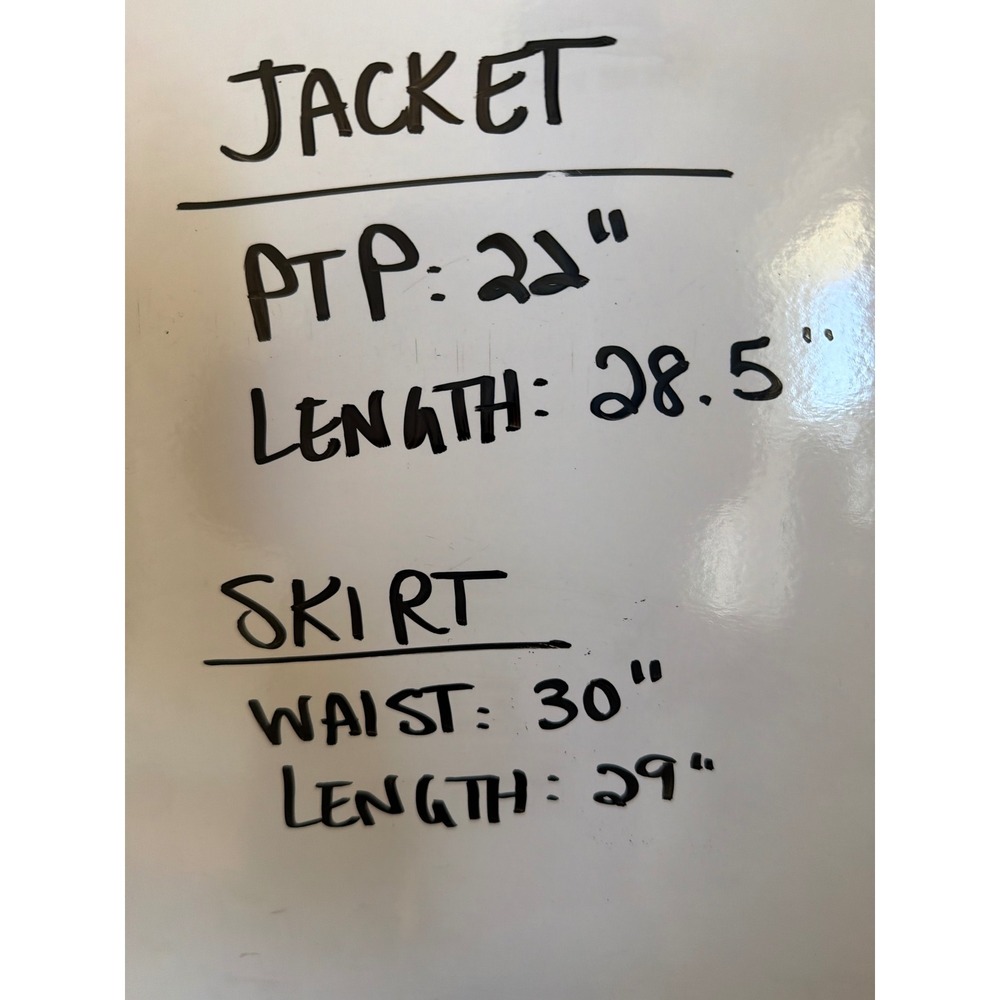 JACKET
PTP: 22"
LENGTH: 28.5"
SKIRT
WAIST: 30"
LENGTH: 29"